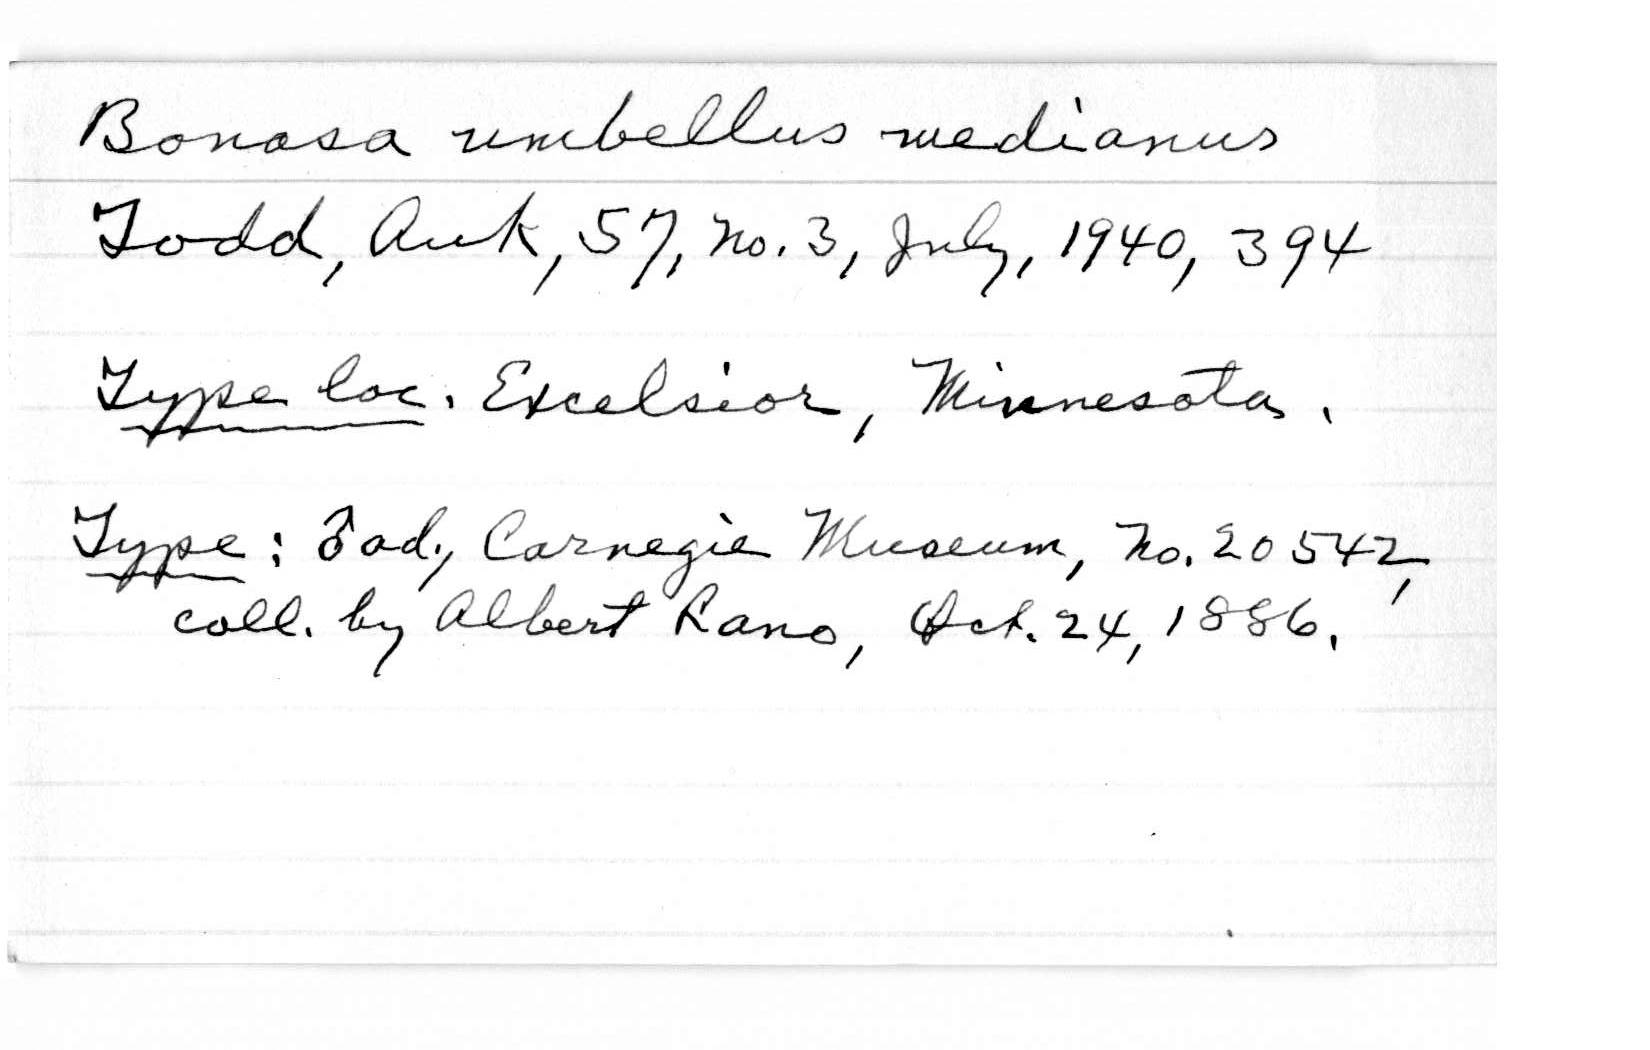 Bonasa umbellus medianus
Todd, Auk, 57, No. 3, July, 1940, 394
Type loc. Excelsior, Minnesota.
Type: ♂ ad., Carnegie Museum, No. 20542,
coll. by Albert Lano, Oct. 24, 1886.